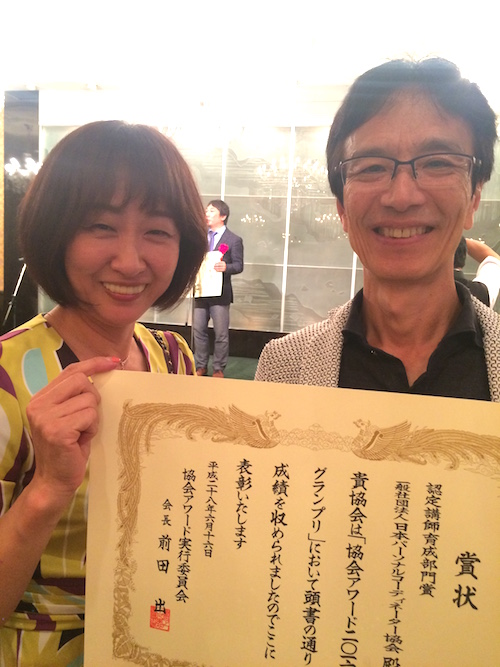 賞状
認定講師育成部門賞
一般社団法人日本パーソナルコーディネーター協会 殿
貴協会は「協会アワード二〇一六
グランプリ」において頭書の通り
成績を収められましたのでここに
表彰いたします
平成二十八年六月十六日
協会アワード実行委員会
会長 前田 出